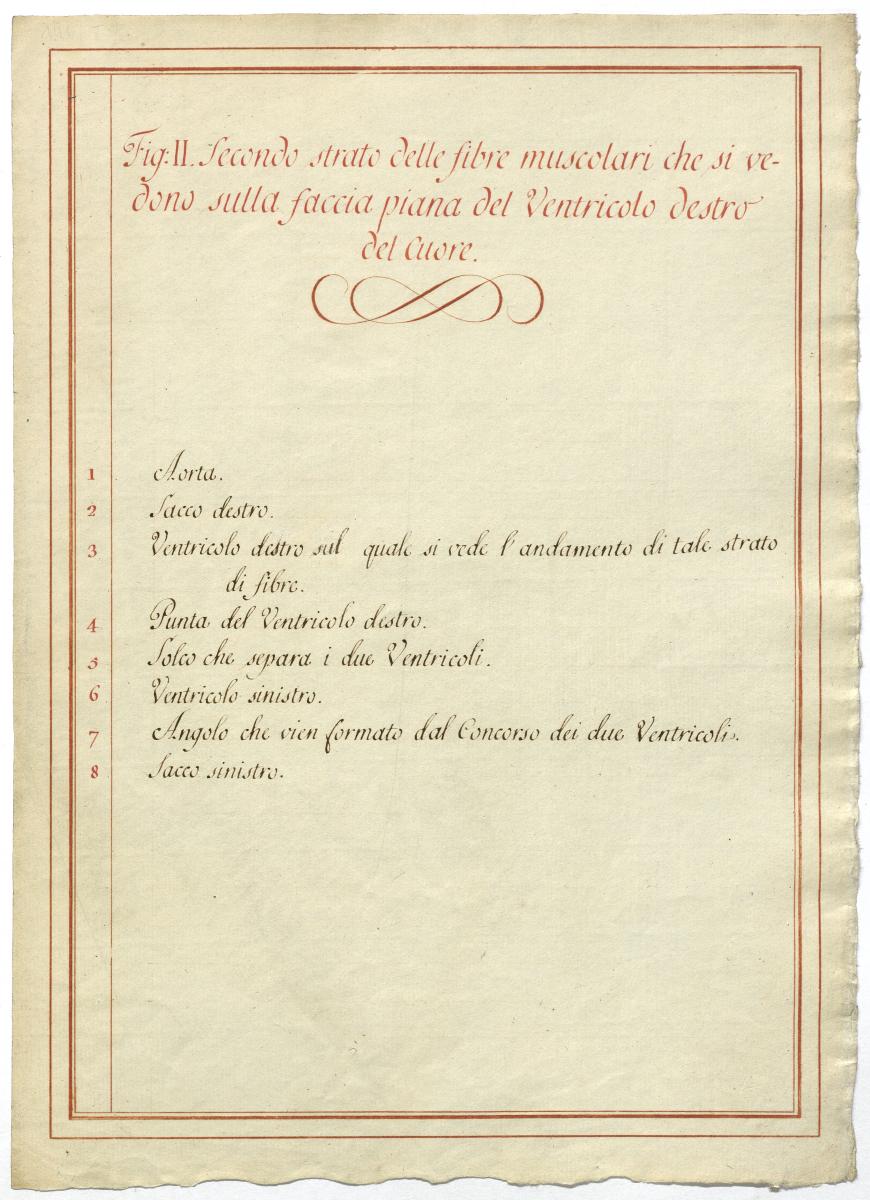 Fig: II. Secondo strato delle fibre muscolari che si ve-
dono sulla faccia piana del Ventricolo destro
del Cuore.
1 Aorta.
2 Sacco destro.
3 Ventricolo destro sul quale si vede l'andamento di tale strato
di fibre.
4 Punta del Ventricolo destro.
5 Solco che separa i due Ventricoli.
6 Ventricolo sinistro.
7 Angolo che vien formato dal Concorso dei due Ventricoli.
8 Sacco sinistro.